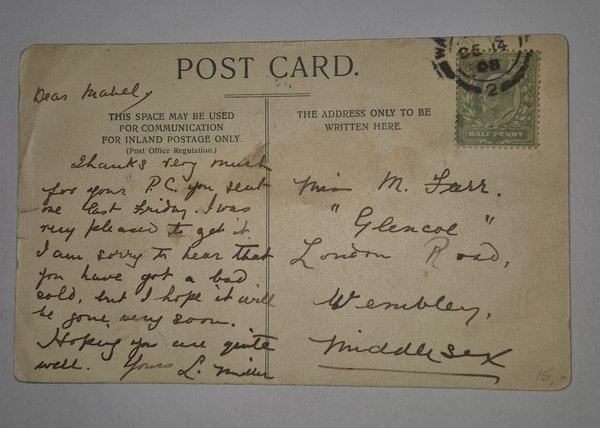 POST CARD.
Dear Mabel,
THIS SPACE MAY BE USED
FOR COMMUNICATION
FOR INLAND POSTAGE ONLY.
(Post Office Regulation.)
Thanks very much
for your P.C. you sent
me last Friday. I was
very pleased to get it.
I am sorry to hear that
you have got a bad
cold, but I hope it will
be gone very soon.
Hoping you are quite
well. Yours L. Miller
THE ADDRESS ONLY TO BE
WRITTEN HERE.
Miss M. Farr.
"Glencoe"
London Road,
Wembley,
Middlesex
WA
DE 14
08
2
HALF PENNY
15,-